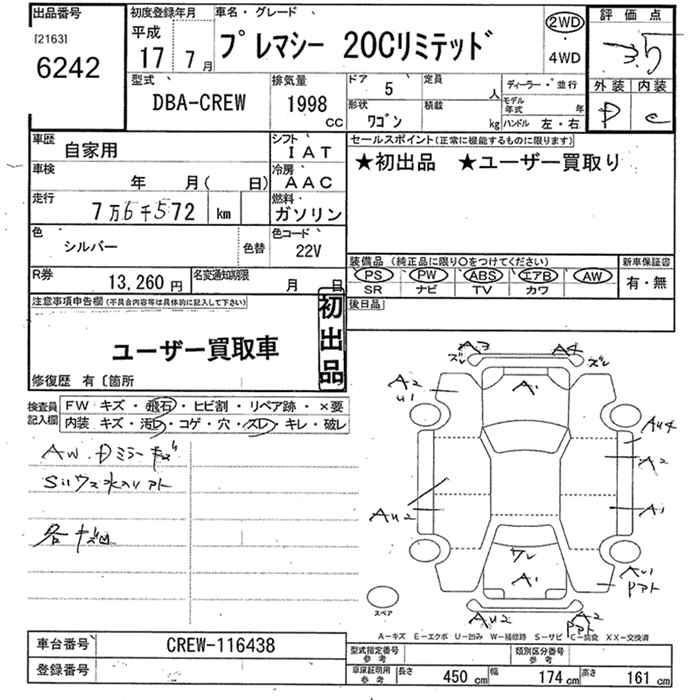 出品番号
[2163]
6242
初度登録年月
平成
17 7月
車名・グレード
プレマシー 20Cリミテッド
2WD
4WD
評価点
3.5
外装 内装
D C
型式
DBA-CREW
排気量
1998
CC
ドア 5
形状 ワゴン
定員 人
積載 kg
ディーラー・並行
モデル年式 年
ハンドル 左・右
車歴
自家用
シフト
IAT
車検
年 月( 日)
冷房
AAC
走行
7万6千572 km
燃料
ガソリン
色
シルバー
色替
色コード
22V
R券
13,260円
名変通知期限
月 日
セールスポイント(正常に機能するものに限ります)
★初出品 ★ユーザー買取り
装備品(純正品に限り○をつけてください)
PS PW ABS エアB AW
SR ナビ TV カワ
新車保証書
有・無
後日品
注意事項申告欄(不具合内容等は具体的に記入して下さい)
初出品
ユーザー買取車
修復歴 有〔箇所
検査員記入欄
FW キズ・飛石・ヒビ割・リペア跡・×要
内装 キズ・汚れ・コゲ・穴・スレ・キレ・破レ
AW. Dミラーキズ
各キズ凹
A3
ズレ
A4
ズレ
A2
U1
A1
AU4
A2
A1
AU2
ワレ
A1
AU1
Pアト
AU2
A2
Pアト
スペア
A-キズ E-エクボ U-凹み W-補修跡 S-サビ C-腐食 XX-交換済
車台番号
CREW-116438
登録番号
型式指定番号
参考
類別区分番号
参考
車庫証明用
参考
長さ
450cm
幅
174cm
高さ
161cm